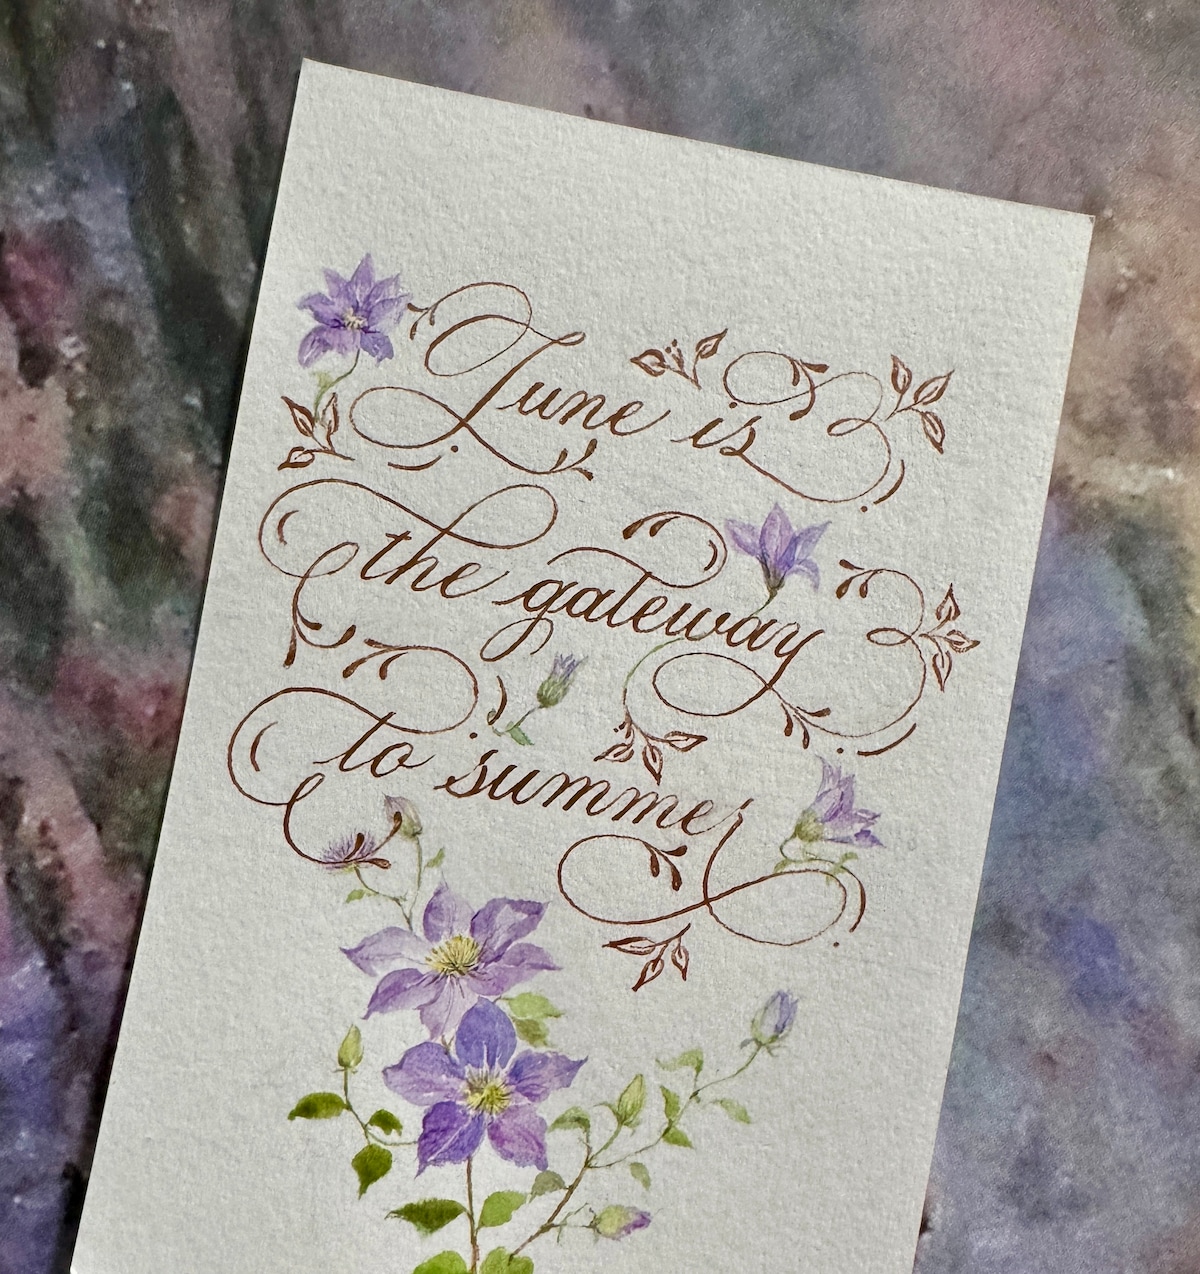 June is
the gateway
to summer